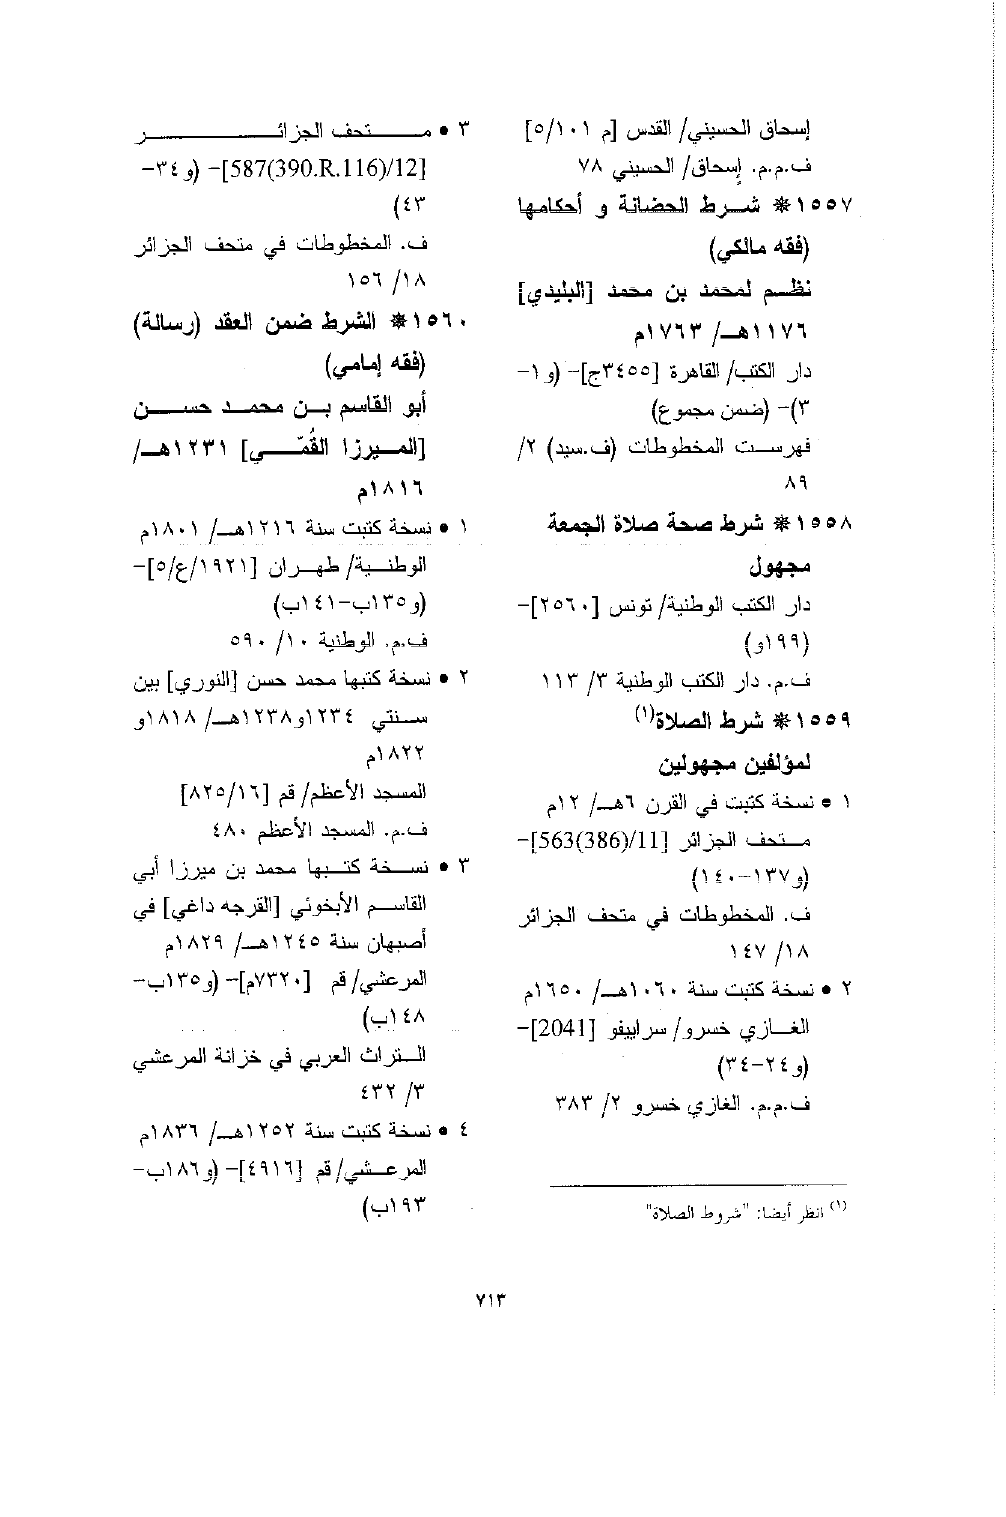 إسحاق الحسيني/ القدس [م ٥/١٠١]
ف.م.م. إسحاق/ الحسيني ٧٨
١٥٥٧* شرط الحضانة و أحكامها
(فقه مالكي)
نظم لمحمد بن محمد [البليدي]
١١٧٦هـ/ ١٧٦٣م
دار الكتب/ القاهرة [٣٤٥٥ج]- (و١-
٣)- (ضمن مجموع)
فهرست المخطوطات (ف.سيد) ٢/
٨٩
١٥٥٨* شرط صحة صلاة الجمعة
مجهول
دار الكتب الوطنية/ تونس [٢٥٦٠]-
(١٩٩و)
ف.م. دار الكتب الوطنية ٣/ ١١٣
١٥٥٩* شرط الصلاة(١)
لمؤلفين مجهولين
١ • نسخة كتبت في القرن ٦هـ/ ١٢م
متحف الجزائر [563(386)/11]-
(و١٣٧-١٤٠)
ف. المخطوطات في متحف الجزائر
١٨/ ١٤٧
٢ • نسخة كتبت سنة ١٠٦٠هـ/ ١٦٥٠م
الغازي خسرو/ سراييفو [2041]-
(و٢٤-٣٤)
ف.م.م. الغازي خسرو ٢/ ٣٨٣
(١) انظر أيضا: "شروط الصلاة"
٣ • متحف الجزائر
[587(390.R.116)/12]- (و٣٤-
٤٣)
ف. المخطوطات في متحف الجزائر
١٨/ ١٥٦
١٥٦٠* الشرط ضمن العقد (رسالة)
(فقه إمامي)
أبو القاسم بن محمد حسن
[الميرزا القُمّي] ١٢٣١هـ/
١٨١٦م
١ • نسخة كتبت سنة ١٢١٦هـ/ ١٨٠١م
الوطنية/ طهران [١٩٢١/ع/٥]-
(و١٣٥ب-١٤١ب)
ف.م. الوطنية ١٠/ ٥٩٠
٢ • نسخة كتبها محمد حسن [النوري] بين
سنتي ١٢٣٤و١٢٣٨هـ/ ١٨١٨و
١٨٢٢م
المسجد الأعظم/ قم [٨٢٥/١٦]
ف.م. المسجد الأعظم ٤٨٠
٣ • نسخة كتبها محمد بن ميرزا أبي
القاسم الأبخوئي [القرجه داغي] في
أصبهان سنة ١٢٤٥هـ/ ١٨٢٩م
المرعشي/ قم [٧٣٢٠م]- (و١٣٥ب-
١٤٨ب)
التراث العربي في خزانة المرعشي
٣/ ٤٣٢
٤ • نسخة كتبت سنة ١٢٥٢هـ/ ١٨٣٦م
المرعشي/ قم [٤٩١٦]- (و١٨٦ب-
١٩٣ب)
٧١٣